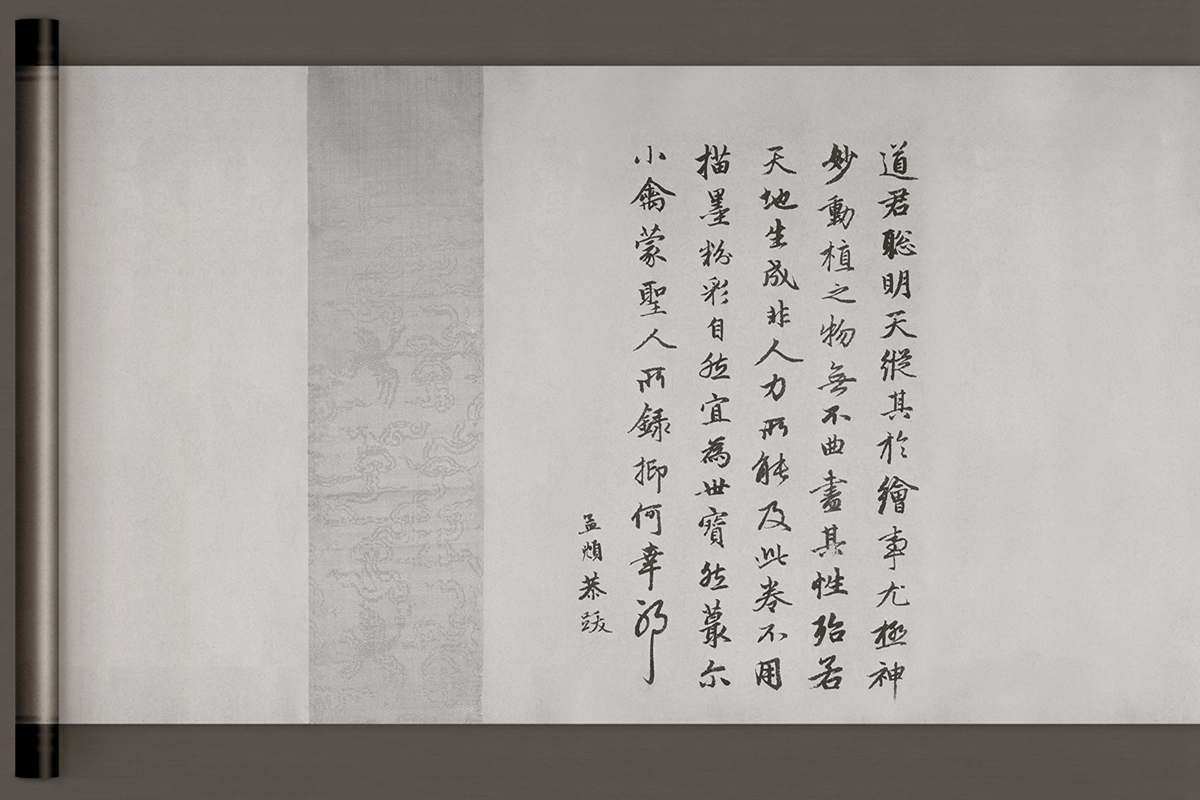 道君聡明天縱其於繪事尤極神
妙動植之物無不曲盡其性殆若
天地生成非人力所能及此卷不用
描墨粉彩自然宜為世寶然蕞尓
小禽蒙聖人所録抑何幸耶
孟頫恭跋